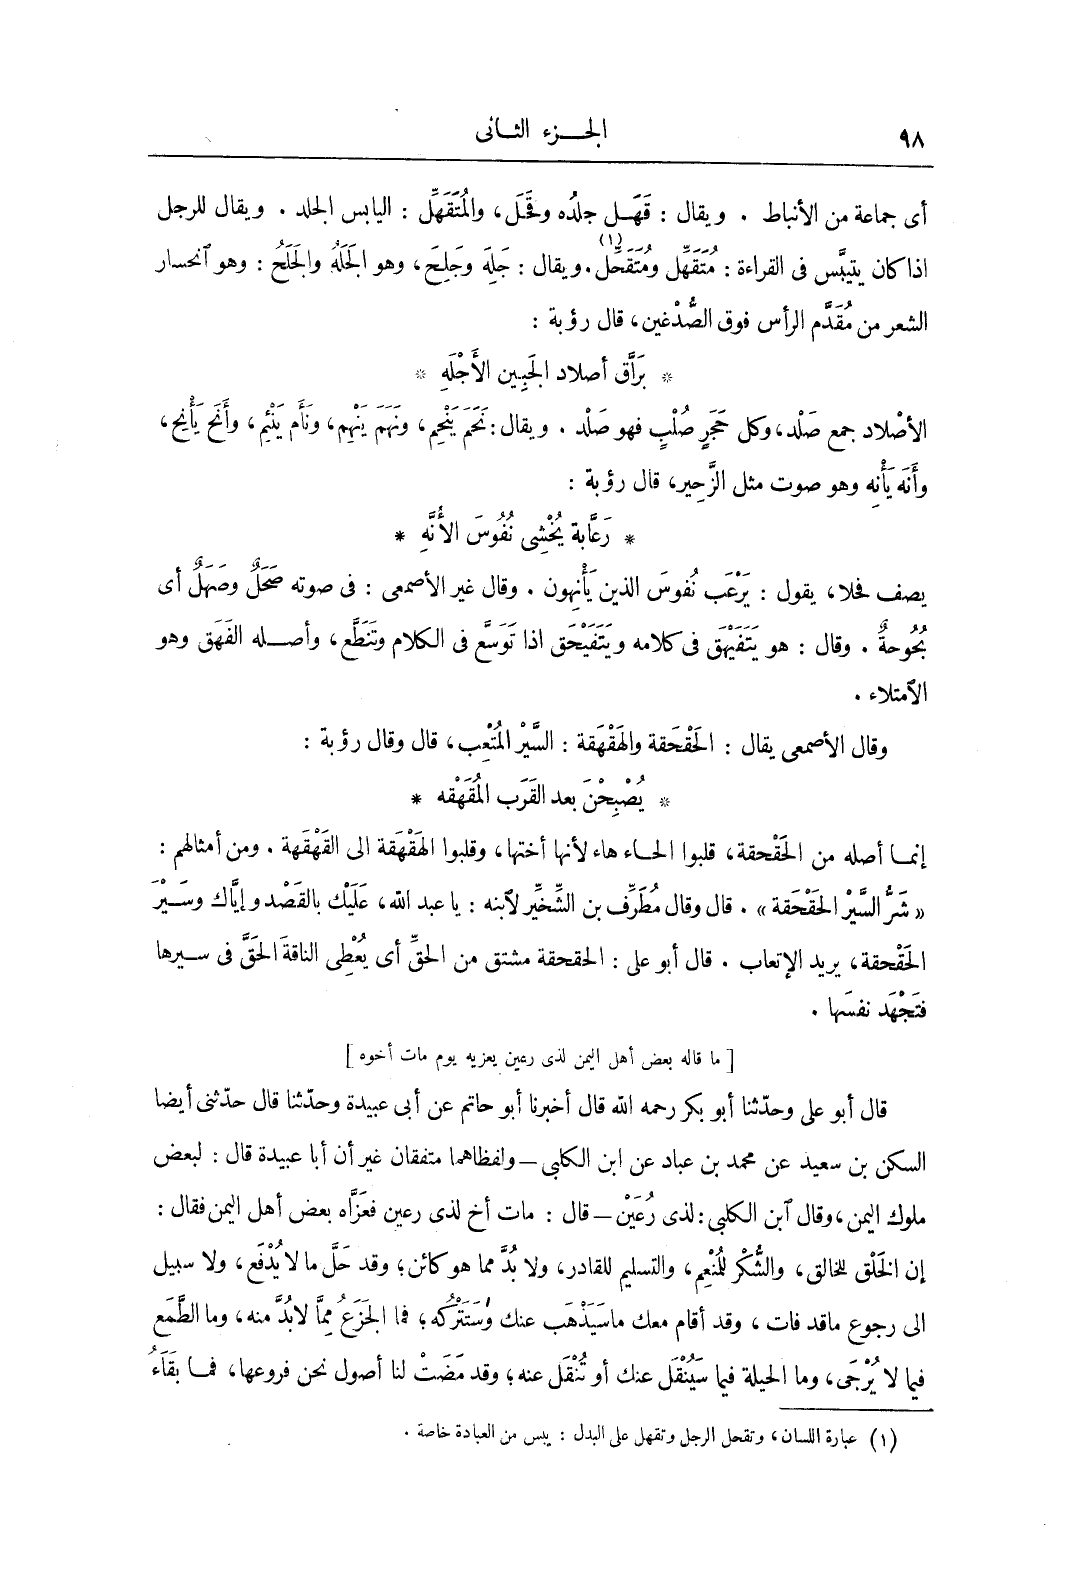 ٩٨ الجـــزء الثـانى
أى جماعة من الأنباط . ويقال : قَهَـل جلدُه وقَحَلَ، والمُتَقَهِّل : اليابس الجلد . ويقال للرجل
اذا كان يتيبَّس فى القراءة : مُتَقَهِّل ومُتَقَحِّل(١). ويقال : جَلِهَ وجَلِحَ، وهو الجَلَهُ والجَلَحُ : وهو آنحسار
الشعر من مُقَدَّم الرأس فوق الصُّدْغين، قال رؤبة :
* بَرَّاق أصلاد الجَبِين الأَجْلَهِ *
الأصْلاد جمع صَلْد، وكل حَجَرٍ صُلْبٍ فهو صَلْد . ويقال: نَحَمَ يَنْحِم، ونَهَمَ يَنْهِم، ونَأَم يَنْئِم، وأَنَح يَأْنِح،
وأَنَه يَأْنِه وهو صوت مثل الزَّحِير، قال رؤبة :
* رَعَّابة يُخْشِى نُفُوسَ الأُنَّهِ *
يصف فحلا، يقول : يَرْعَب نُفوسَ الذين يَأْنِهون . وقال غير الأصمعى : فى صوته صَحَلٌ وصَهَلٌ أى
بُحُوحةٌ . وقال : هو يَتَفَيْهَق فى كلامه ويَتَفَيْحَق اذا تَوَسَّع فى الكلام وتَنَطَّع، وأصـله الفَهَق وهو
الآمتلاء .
وقال الأصمعى يقال : الحَقْحَقة والهَقْهَقة : السَّيْر المُتْعِب، قال وقال رؤبة :
* يُصْبِحْنَ بعد القَرَب المُقَهْقِه *
إنمـا أصله من الحَقْحقة، قلبوا الحـاء هاء لأنها أختها، وقلبوا الهَقْهَقة الى القَهْقَهة . ومن أمثالهم :
« شَرُّ السَّيْر الحَقْحَقة » . قال وقال مُطَرِّف بن الشِّخِّير لآبنه : يا عبد الله، عَلَيْك بالقَصْد وإيَّاك وسَـيْرَ
الحَقْحقة، يريد الإتعاب . قال أبو على : الحقحقة مشتق من الحقِّ أى يُعْطِى الناقةَ الحَقَّ فى سـيرها
فتَجْهَد نفسَها .
[ ما قاله بعض أهل اليمن لذى رعين يعزيه يوم مات أخوه ]
قال أبو على وحدّثنا أبو بكر رحمه الله قال أخبرنا أبو حاتم عن أبى عبيدة وحدّثنا قال حدّثنى أيضا
السكن بن سعيد عن محمد بن عباد عن ابن الكلبى – ولفظاهما متفقان غير أن أبا عبيدة قال : لبعض
ملوك اليمن، وقال آبن الكلبى : لذى رُعَيْن – قال : مات أخ لذى رعين فعَزَّاه بعض أهل اليمن فقال :
إن الخَلْق للخالق، والشُّكْر للُمنْعِم، والتسليم للقادر، ولا بُدَّ مما هو كائن؛ وقد حَلَّ ما لا يُدْفَع، ولا سبيل
الى رجوع ماقد فات، وقد أقام معك ماسَيَذْهَب عنك وسَتَتْركه؛ فما الجَزَعُ مِمَّا لابُدَّ منه، وما الطَّمَع
فيما لا يُرْجَى، وما الحيلة فيما سَيُنْقَل عنك أو تُنْقَل عنه؛ وقد مَضَتْ لنا أصول نحن فروعها، فمـا بقَاءُ
(١) عبارة اللسان، وتقحل الرجل وتقهل على البدل : يبس من العبادة خاصة .